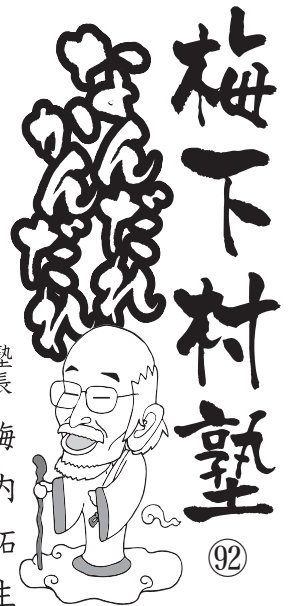 梅下村塾 92
なんだれ
かんだれ
塾長 梅内拓生